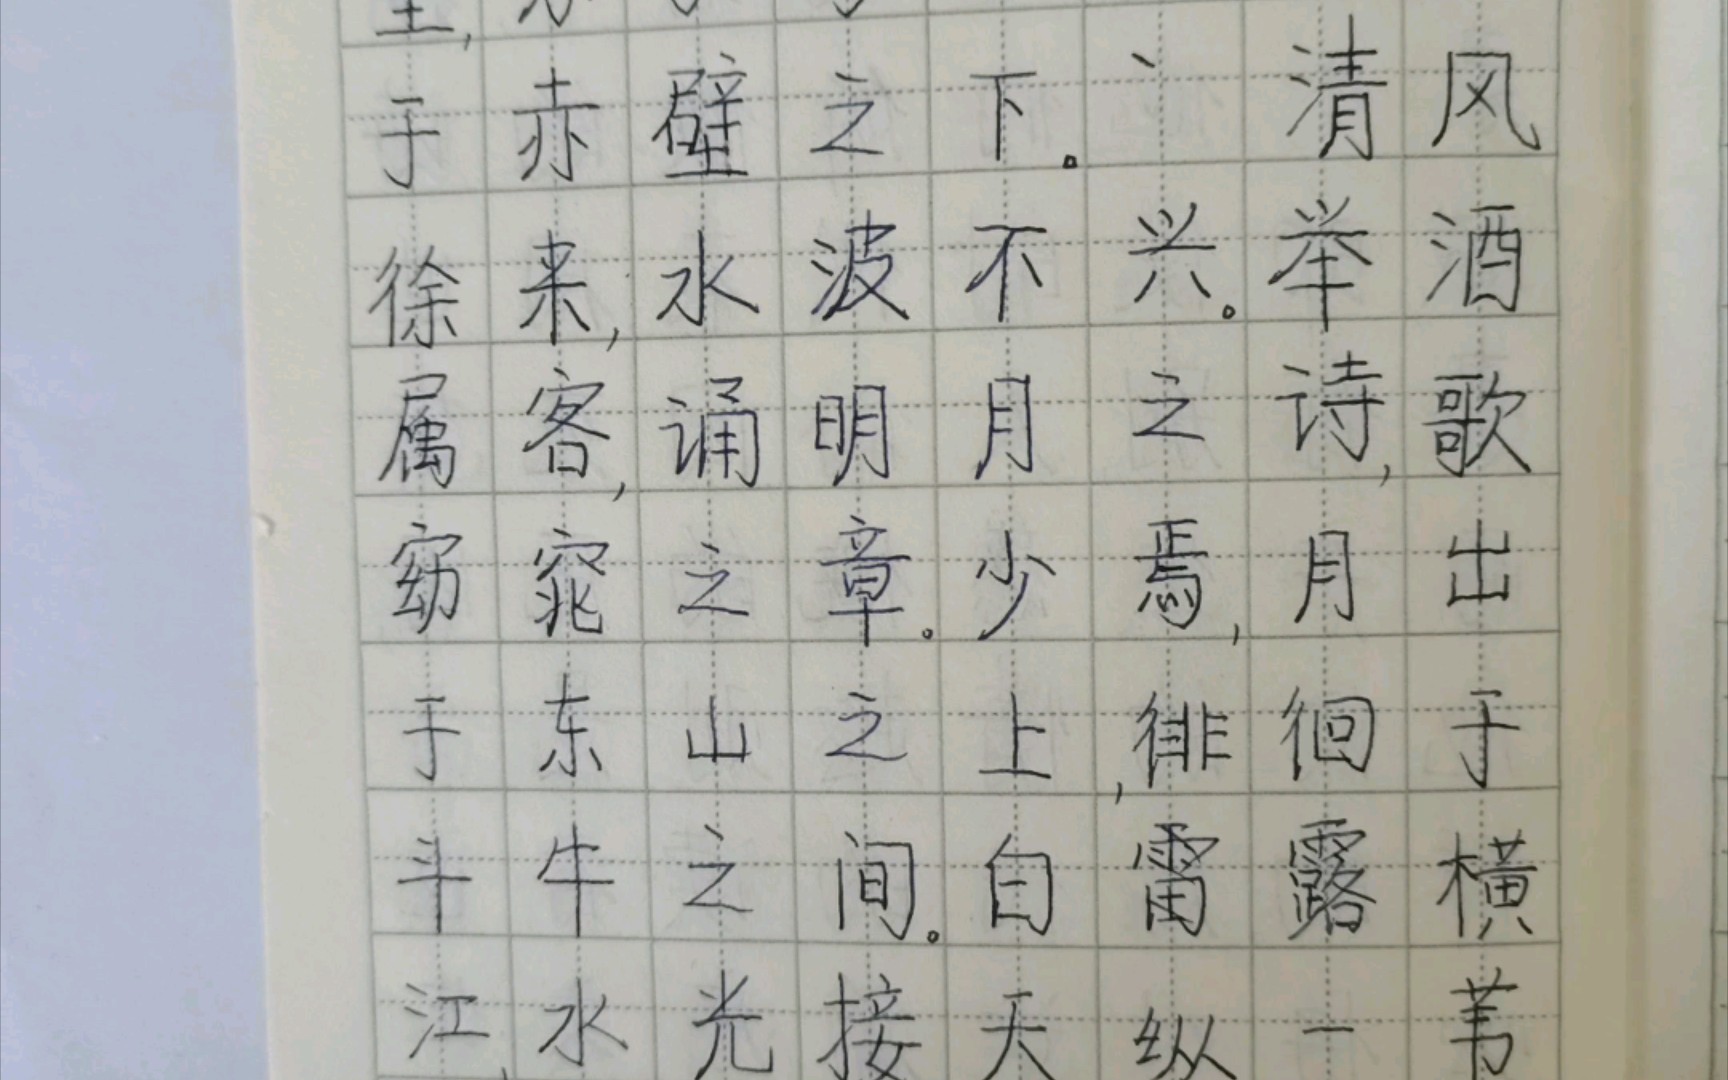 于赤壁之下。清风
徐来,水波不兴。举酒
属客,诵明月之诗,歌
窈窕之章。少焉,月出
于东山之上,徘徊于
斗牛之间。白雷露横
江,水光接天纵一苇